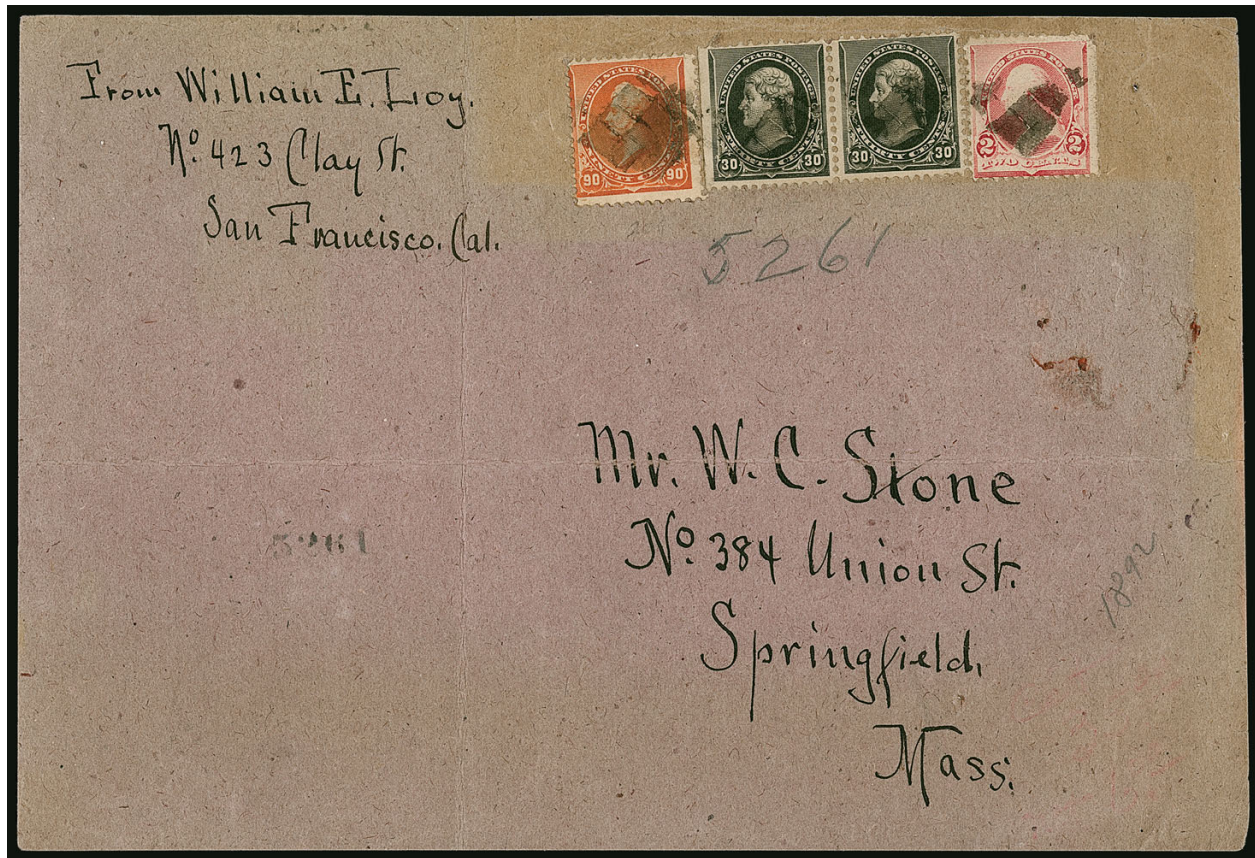 From William E. Loy.
No. 423 Clay St.
San Francisco. Cal.
UNITED STATES POSTAGE
90 NINETY CENTS 90
UNITED STATES POSTAGE
30 THIRTY CENTS 30
UNITED STATES POSTAGE
30 THIRTY CENTS 30
UNITED STATES POSTAGE
2 TWO CENTS 2
5261
Mr. W. C. Stone
No. 384 Union St.
Springfield,
Mass.
5261
1892